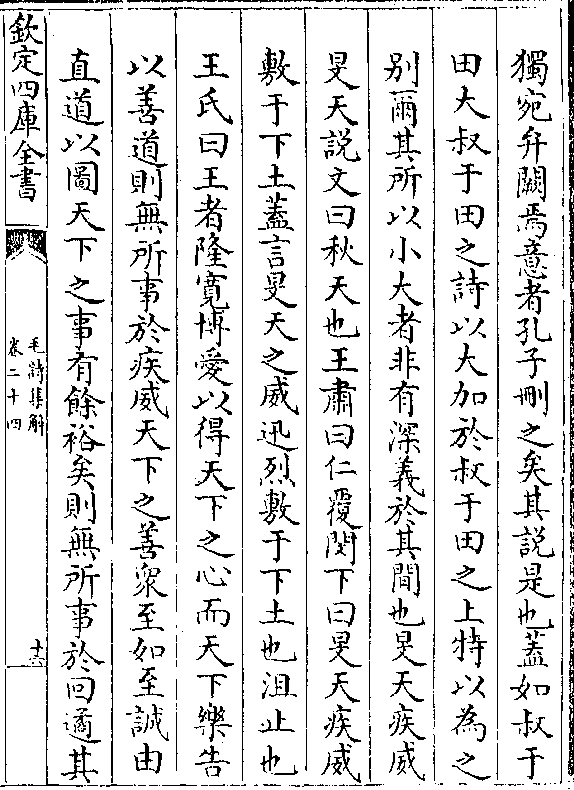 獨宛弁闕焉意者孔子刪之矣其說是也蓋如叔于
田大叔于田之詩以大加於叔于田之上特以為之
别爾其所以小大者非有深義於其間也旻天疾威
旻天說文曰秋天也王肅曰仁覆閔下曰旻天疾威
敷于下土蓋言旻天之威迅烈敷于下土也沮止也
王氏曰王者隆寬博愛以得天下之心而天下樂告
以善道則無所事於疾威天下之善衆至如至誠由
直道以圖天下之事有餘裕矣則無所事於回遹其
欽定四庫全書
毛詩集解
卷二十四
十六